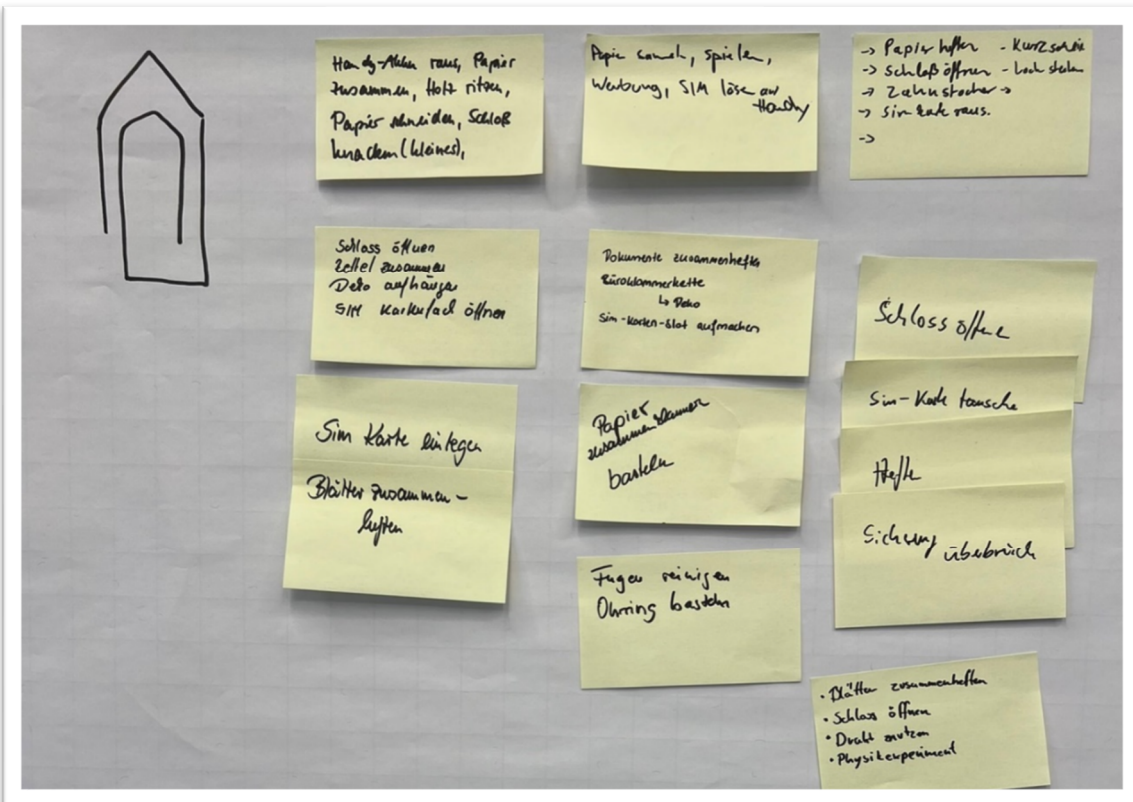 Handy-Akku raus, Papier
zusammen, Holz ritzen,
Papier schneiden, Schloß
knacken (kleines),
Papier sammeln, spielen,
Werbung, SIM lösen aus
Handy
-> Papier heften - Kurzschließ
-> Schloß öffnen - Loch stechen
-> Zahnstocher ->
-> Sim Karte raus.
->
Schloss öffnen
Zettel zusammen
Deko aufhängen
SIM Kartenfach öffnen
Dokumente zusammenheften
Büroklammerkette
↳ Deko
Sim-Karten-Slot aufmachen
Schloss öffnen
Sim-Karte tauschen
Hefte
Sicherung überbrück
Sim Karte einlegen
Blätter zusammen-
heften
Papier
zusammenklammern
basteln
Fugen reinigen
Ohrring basteln
• Blätter zusammenheften
• Schloss öffnen
• Draht nutzen
• Physikexperiment